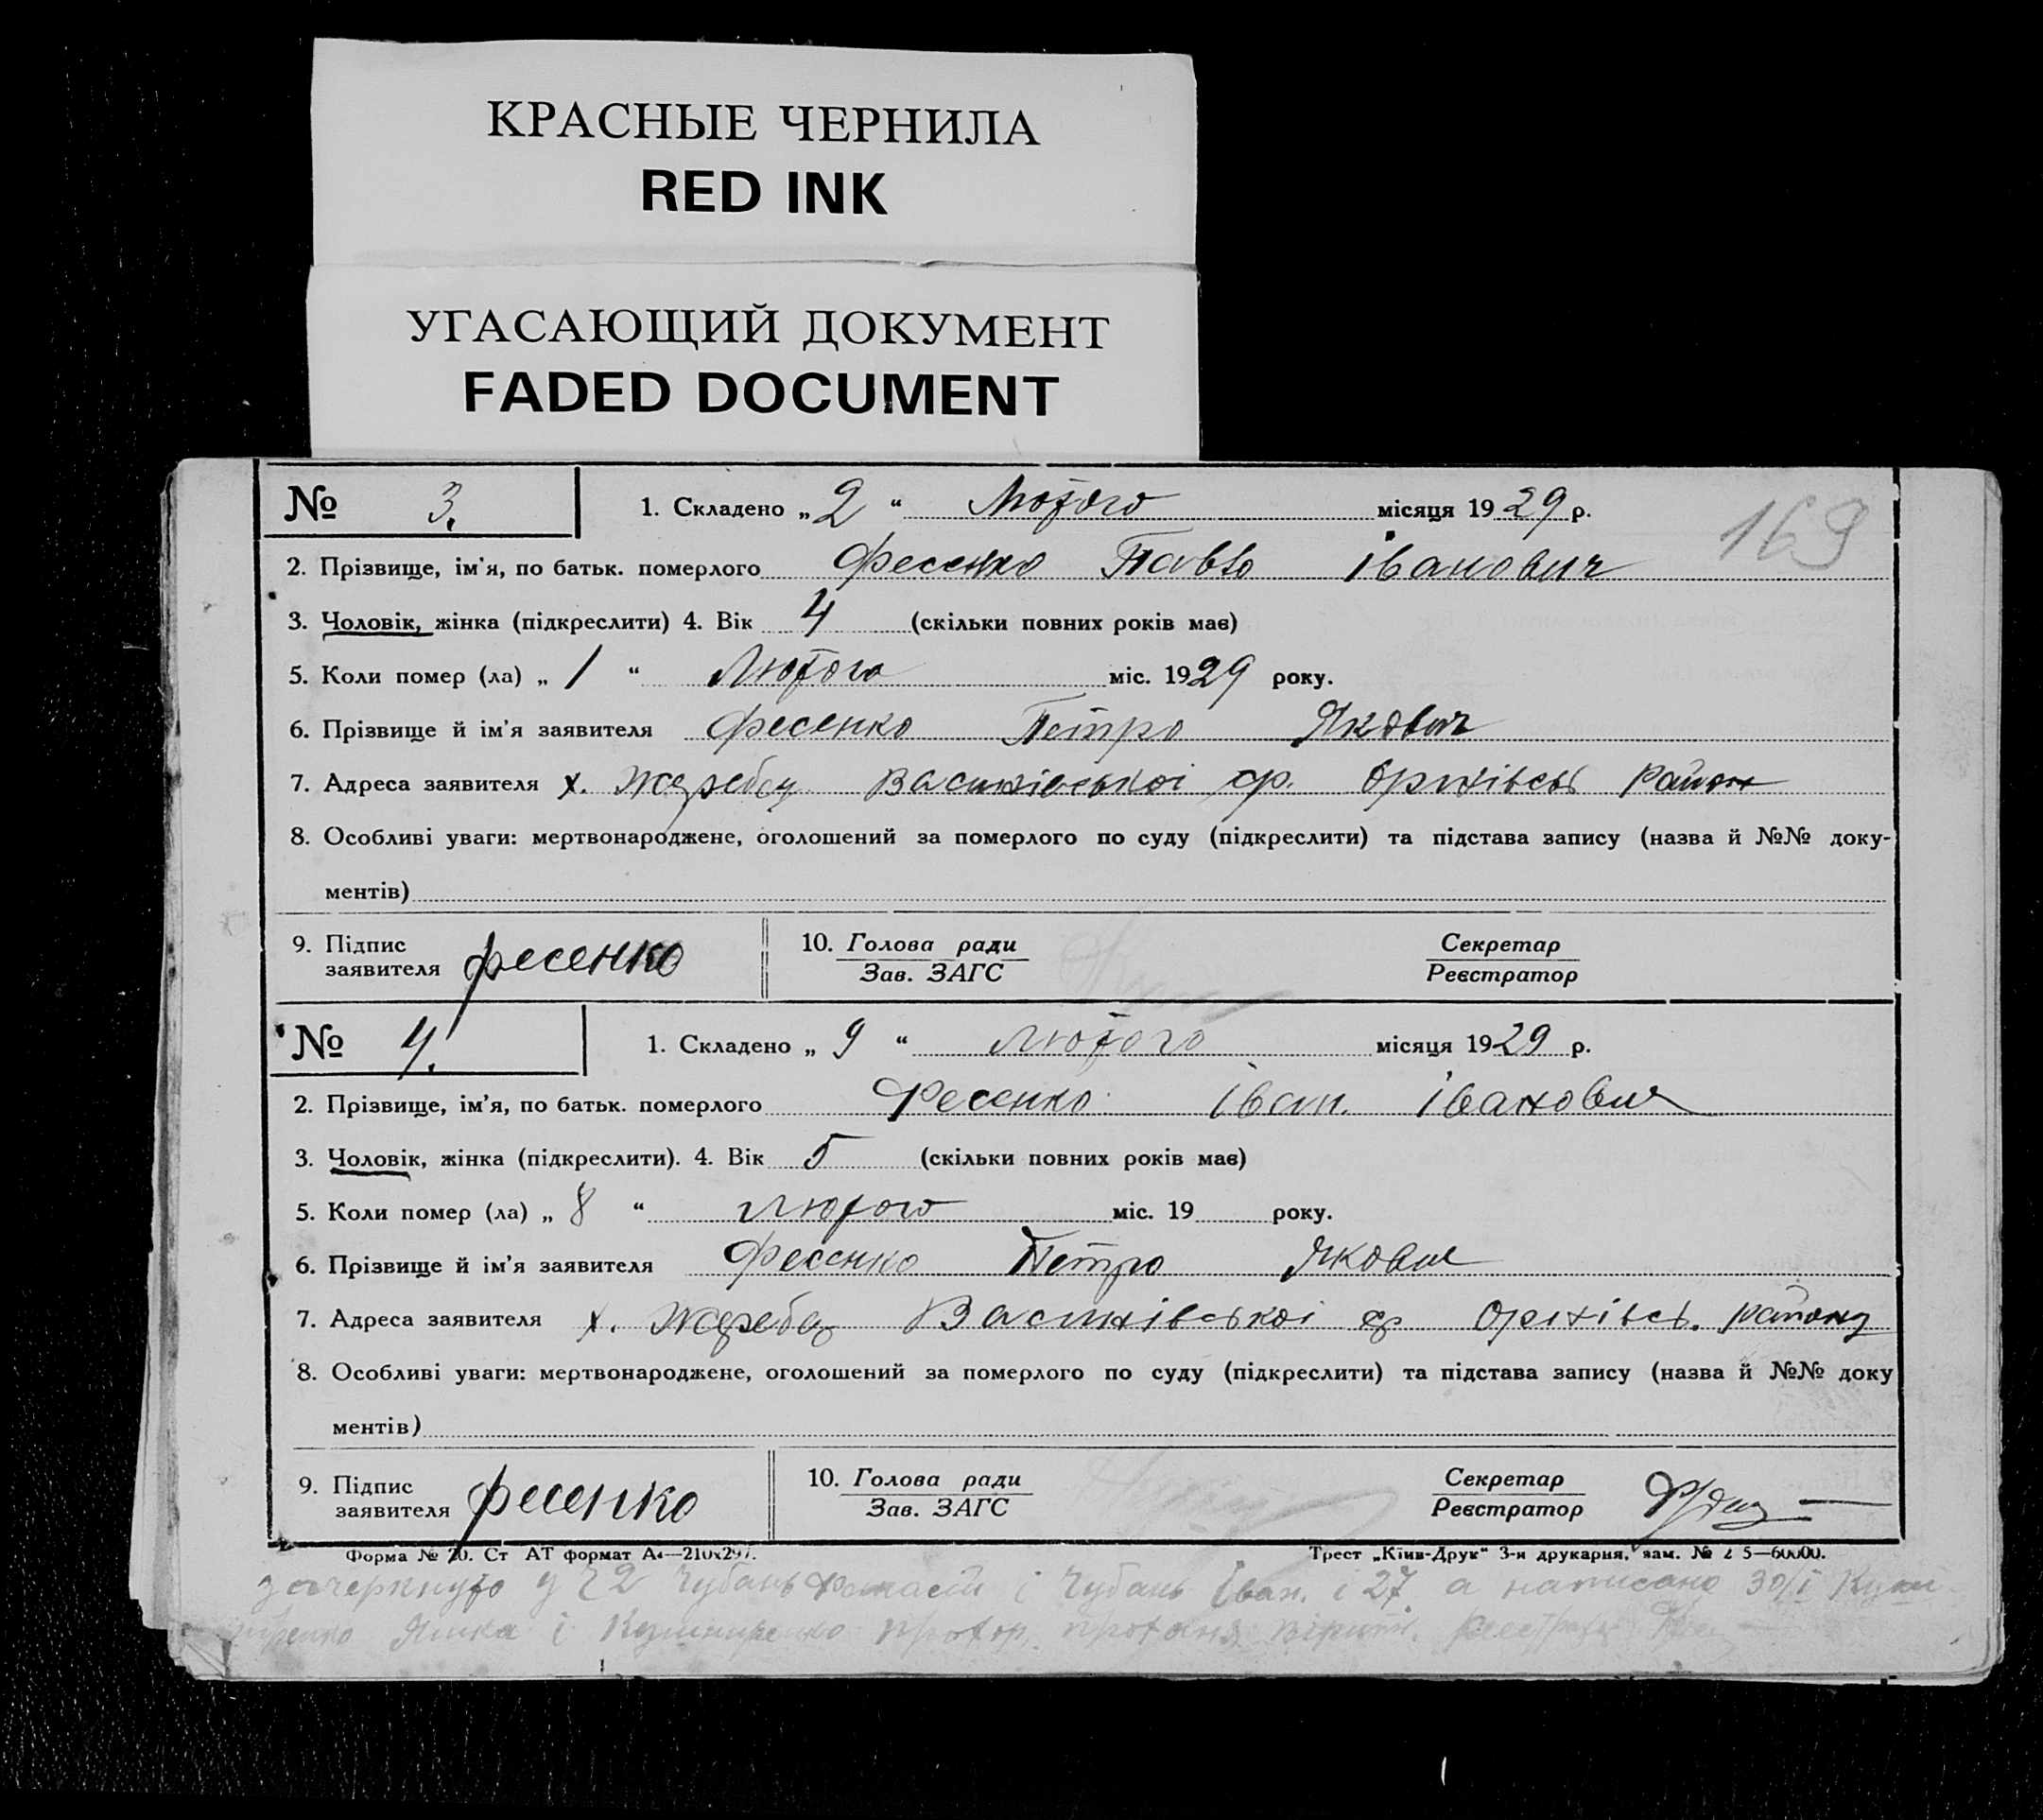 КРАСНЫЕ ЧЕРНИЛА
RED INK
УГАСАЮЩИЙ ДОКУМЕНТ
FADED DOCUMENT
169
№ 3. 1. Складено „ 2 “ Лютого місяця 1929 р.
2. Прізвище, ім'я, по батьк. померлого Фесенко Павло Іванович
3. Чоловік, жінка (підкреслити) 4. Вік 4 (скільки повних років має)
5. Коли помер (ла) „ 1 “ Лютого міс. 1929 року.
6. Прізвище й ім'я заявителя Фесенко Петро Якович
7. Адреса заявителя х. Жеребец Василівської ср. Оріхівсь район
8. Особливі уваги: мертвонароджене, оголошений за померлого по суду (підкреслити) та підстава запису (назва й №№ доку-
ментів)
9. Підпис заявителя фесенко 10. Голова ради Зав. ЗАГС Секретар Реєстратор
№ 4. 1. Складено „ 9 “ лютого місяця 1929 р.
2. Прізвище, ім'я, по батьк. померлого Фесенко Іван. Іванович
3. Чоловік, жінка (підкреслити). 4. Вік 5 (скільки повних років має)
5. Коли помер (ла) „ 8 “ лютого міс. 19 року.
6. Прізвище й ім'я заявителя Фесенко Петро Якович
7. Адреса заявителя х. Василівської ср Оріхівсь. району
8. Особливі уваги: мертвонароджене, оголошений за померлого по суду (підкреслити) та підстава запису (назва й №№ доку
ментів)
9. Підпис заявителя фесенко 10. Голова ради Зав. ЗАГС Секретар Реєстратор
Форма № 20. Ст АТ формат А4—210х297. Трест „Київ-Друк“ 3-я друкарня, зам. №
зачеркнуто у Чубань і Чубань Іван. і 27 а написано 30/I
і